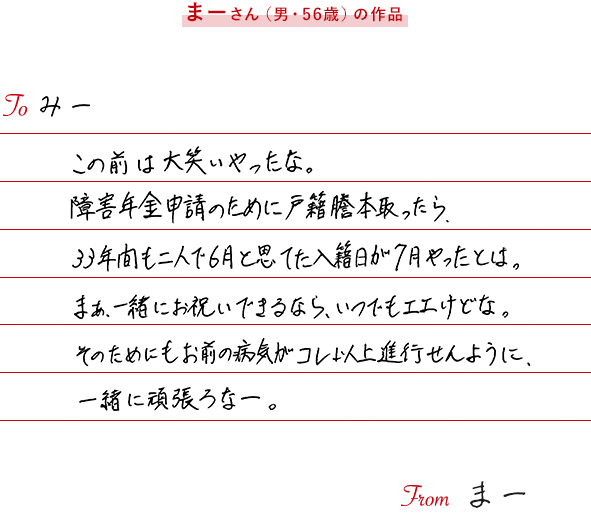 まーさん（男・56歳）の作品
To みー
この前は大笑いやったな。
障害年金申請のために戸籍謄本取ったら、
33年間も二人で6月と思てた入籍日が7月やったとは。
まぁ、一緒にお祝いできるなら、いつでもエエけどな。
そのためにもお前の病気がコレ以上進行せんように、
一緒に頑張ろなー。
From まー